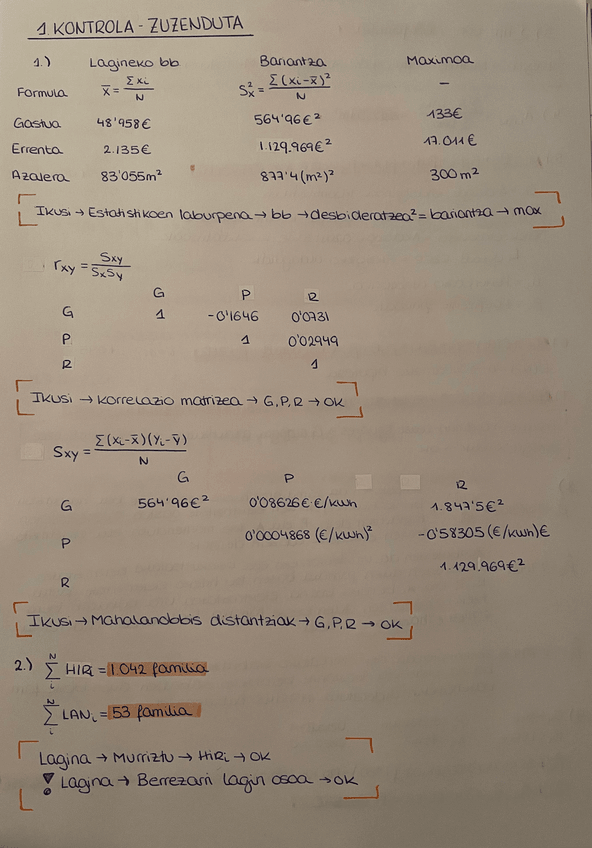 1 KONTROLA - ZUZENDUTA
1.) Lagineko bb Bariantza Maximoa
Formula x̄ = Σxi/N S²x = Σ(xi-x̄)²/N -
Gastua 48'958€ 564'96€² 133€
Errenta 2.135€ 1.129.969€² 17.011€
Azalera 83'055m² 877'4(m²)² 300m²
Ikusi → Estatistikoen laburpena → bb → desbideratzea² = bariantza → max
rxy = Sxy/SxSy
G P R
G 1 -0'1646 0'0731
P 1 0'02949
R 1
Ikusi → Korrelazio matrizea → G,P,R → OK
Sxy = Σ(xi-x̄)(yi-ȳ)/N
G P R
G 564'96€² 0'08626€·€/kwh 1.847'5€²
P 0'0004868 (€/kwh)² -0'58305(€/kwh)€
R 1.129.969€²
Ikusi → Mahalanobbis distantziak → G,P,R → OK
2.) Σ N i HIRi = 1.042 familia
Σ N i LANi = 53 familia
Lagina → Murriztu → HiRi → OK
! Lagina → Berrezarri lagin osoa → OK